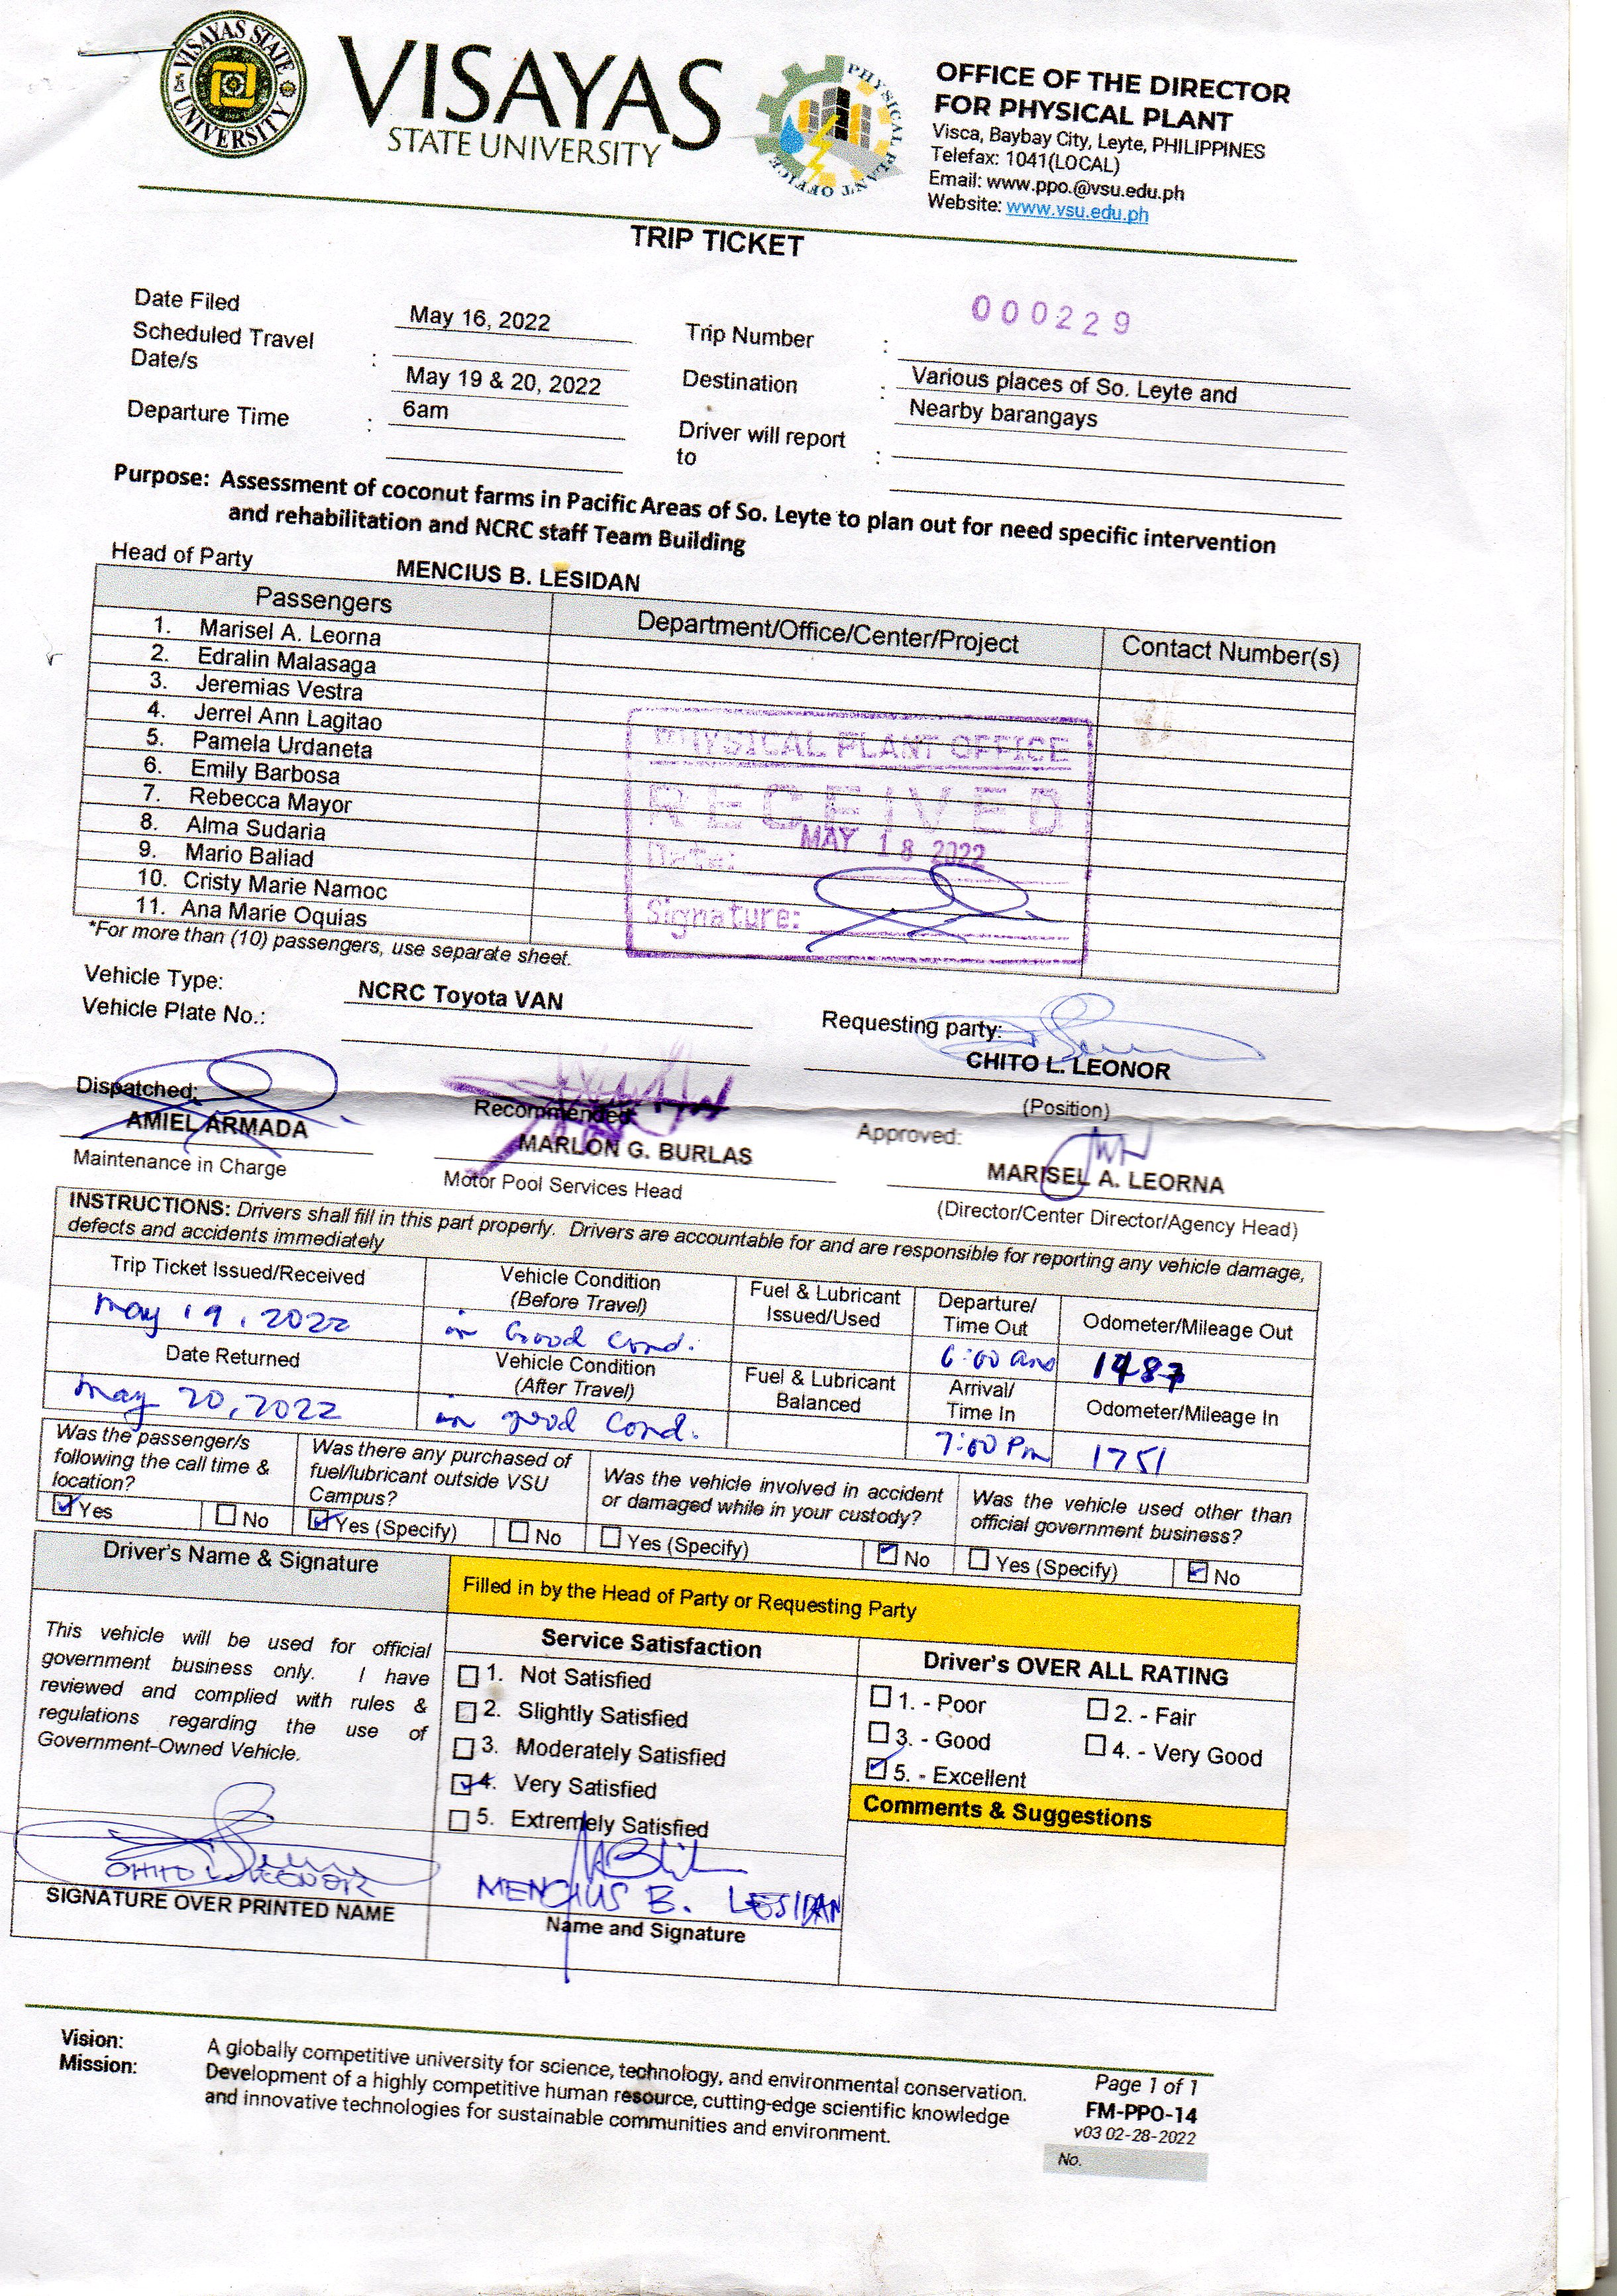 VISAYAS STATE UNIVERSITY
VISAYAS
STATE UNIVERSITY
PHYSICAL PLANT OFFICE
OFFICE OF THE DIRECTOR
FOR PHYSICAL PLANT
Visca, Baybay City, Leyte, PHILIPPINES
Telefax: 1041(LOCAL)
Email: www.ppo.@vsu.edu.ph
Website: www.vsu.edu.ph
TRIP TICKET
Date Filed May 16, 2022 Trip Number : 000229
Scheduled Travel
Date/s : May 19 & 20, 2022 Destination : Various places of So. Leyte and
Nearby barangays
Departure Time : 6am Driver will report
to :
Purpose: Assessment of coconut farms in Pacific Areas of So. Leyte to plan out for need specific intervention
and rehabilitation and NCRC staff Team Building
Head of Party MENCIUS B. LESIDAN
Passengers Department/Office/Center/Project Contact Number(s)
1. Marisel A. Leorna
2. Edralin Malasaga
3. Jeremias Vestra
4. Jerrel Ann Lagitao
5. Pamela Urdaneta
6. Emily Barbosa
7. Rebecca Mayor
8. Alma Sudaria
9. Mario Baliad
10. Cristy Marie Namoc
11. Ana Marie Oquias
PHYSICAL PLANT OFFICE
RECEIVED
Date: MAY 18 2022
Signature:
*For more than (10) passengers, use separate sheet.
Vehicle Type: NCRC Toyota VAN
Vehicle Plate No.:
Requesting party:
CHITO L. LEONOR
(Position)
Dispatched: Recommended: Approved:
AMIEL ARMADA MARLON G. BURLAS MARISEL A. LEORNA
Maintenance in Charge Motor Pool Services Head (Director/Center Director/Agency Head)
INSTRUCTIONS: Drivers shall fill in this part properly. Drivers are accountable for and are responsible for reporting any vehicle damage,
defects and accidents immediately
Trip Ticket Issued/Received Vehicle Condition
(Before Travel) Fuel & Lubricant
Issued/Used Departure/
Time Out Odometer/Mileage Out
May 19, 2022 in Good Cond. 6:00 am 1487
Date Returned Vehicle Condition
(After Travel) Fuel & Lubricant
Balanced Arrival/
Time In Odometer/Mileage In
May 20, 2022 in good Cond. 7:00 Pm 1751
Was the passenger/s
following the call time &
location?
Yes No
Was there any purchased of
fuel/lubricant outside VSU
Campus?
Yes (Specify) No
Was the vehicle involved in accident
or damaged while in your custody?
Yes (Specify) No
Was the vehicle used other than
official government business?
Yes (Specify) No
Driver's Name & Signature
This vehicle will be used for official
government business only. I have
reviewed and complied with rules &
regulations regarding the use of
Government-Owned Vehicle.
CHITO L. LEONOR
SIGNATURE OVER PRINTED NAME
Filled in by the Head of Party or Requesting Party
Service Satisfaction
1. Not Satisfied
2. Slightly Satisfied
3. Moderately Satisfied
4. Very Satisfied
5. Extremely Satisfied
MENCIUS B. LESIDAN
Name and Signature
Driver's OVER ALL RATING
1. - Poor 2. - Fair
3. - Good 4. - Very Good
5. - Excellent
Comments & Suggestions
Vision: A globally competitive university for science, technology, and environmental conservation.
Mission: Development of a highly competitive human resource, cutting-edge scientific knowledge
and innovative technologies for sustainable communities and environment.
Page 1 of 1
FM-PPO-14
v03 02-28-2022
No.